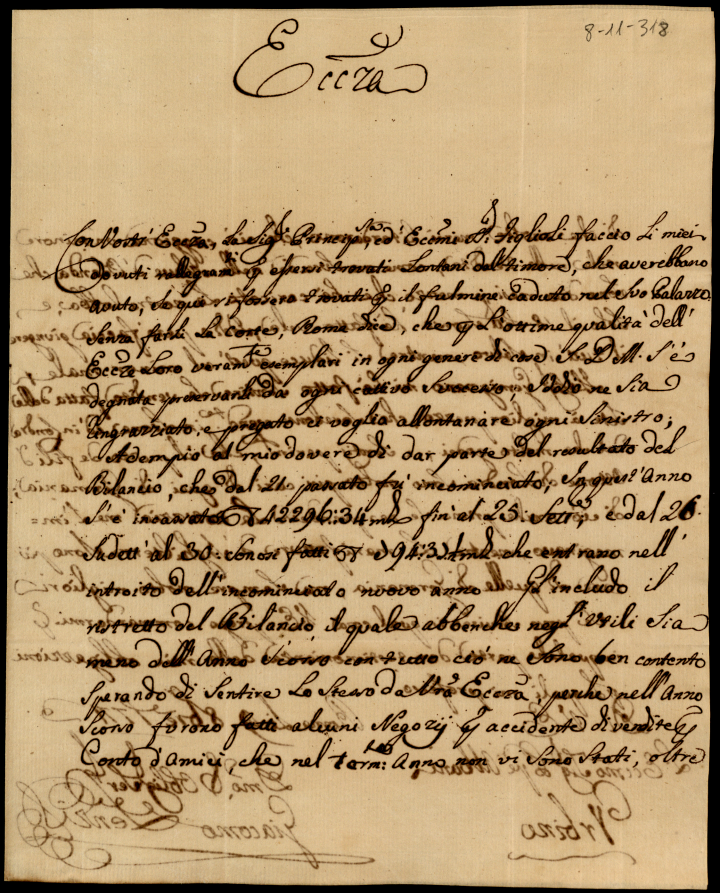 8-11-318
Eccza
Con Vostr' Eccza, la Sigra Principsa, ed' Eccmi Di Figlioli faccio li miei
dovuti rallegramti p essersi trovati Lontani dal timore, che averebbono
avuto, se qui si fossero trovati p il fulmine caduto nel Suo Palazzo
Senza farli la corte, Roma dice, che p L'ottime qualità dell'
Eccze Loro veramte esemplari in ogni genere di cose S. D. M. s'è
degnata preservarli da ogni cattivo Successo, Iddio ne Sia
ringrazziato, e pregato ci voglia allontanare ogni Sinistro;
Adempio al mio dovere di dar parte del resultato del
Bilancio, che dal 21 passato fu incominciato, In quest' Anno
S'è incassato 42296:34 mta fin' al 25: Settre, e dal 26
Sudett' al 30: Sonosi fatti 943 mta che entrano nell'
introito dell' incominciato nuovo anno Gl' includo il
ristretto del Bilancio, il quale abbenche negl' Utili Sia
meno dell' Anno Scorso con tutto ciò ne Sono ben contento
Sperando di Sentire Lo Stesso da Vra Eccza, perche nell' Anno
Scorso furono fatti alcuni Negozij p accidente di vendite p
Conto d'Amici, che nel termto: Anno non vi Sono Stati, oltre